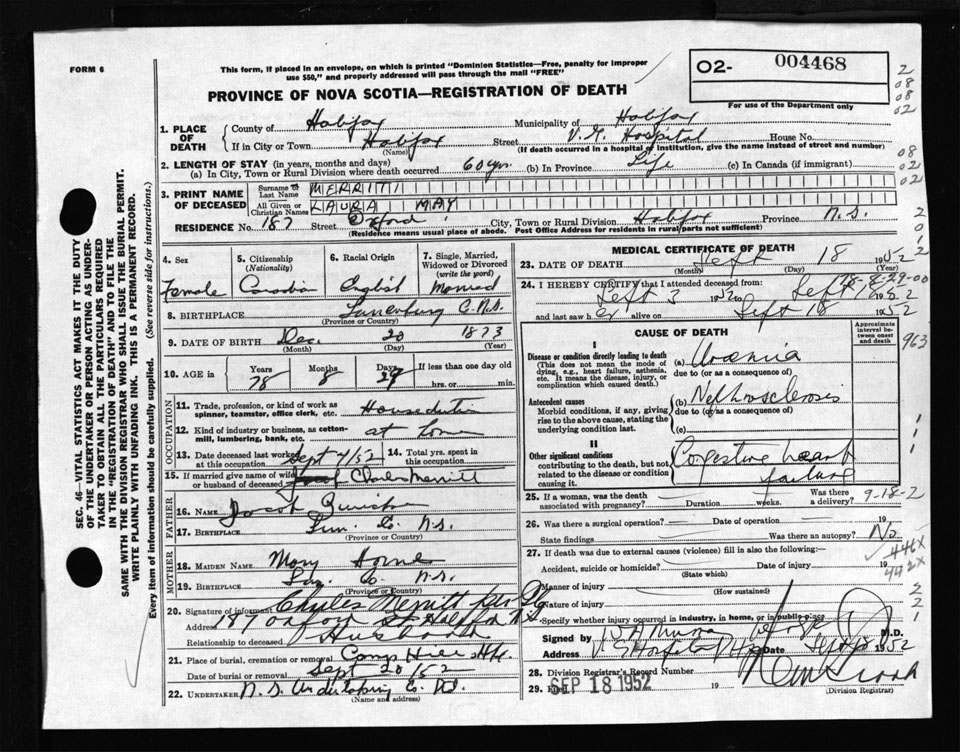 FORM 6
This form, if placed in an envelope, on which is printed "Dominion Statistics—Free, penalty for improper
use $50," and properly addressed will pass through the mail "FREE"
O2- 004468
For use of the Department only
PROVINCE OF NOVA SCOTIA—REGISTRATION OF DEATH
1. PLACE OF DEATH
County of Halifax Municipality of Halifax
If in City or Town Halifax Street V.G. Hospital House No.
(Name) (If death occurred in a hospital or institution, give the name instead of street and number)
2. LENGTH OF STAY (in years, months and days)
(a) In City, Town or Rural Division where death occurred 60 yrs. (b) In Province Life (c) In Canada (if immigrant)
3. PRINT NAME OF DECEASED
Surname or Last Name MERRITT
All Given or Christian Names LAURA MAY
RESIDENCE No. 187 Street Oxford City, Town or Rural Division Halifax Province N.S.
(Residence means usual place of abode. Post Office Address for residents in rural parts not sufficient)
SEC. 46—VITAL STATISTICS ACT MAKES IT THE DUTY
OF THE UNDERTAKER OR PERSON ACTING AS UNDER-
TAKER TO OBTAIN ALL THE PARTICULARS REQUIRED
IN THE "REGISTRATION OF DEATH" AND TO FILE THE
SAME WITH THE DIVISION REGISTRAR WHO SHALL ISSUE THE BURIAL PERMIT.
WRITE PLAINLY WITH UNFADING INK. THIS IS A PERMANENT RECORD.
Every item of information should be carefully supplied. (See reverse side for instructions.)
4. Sex Female
5. Citizenship (Nationality) Canadian
6. Racial Origin English
7. Single, Married, Widowed or Divorced (write the word) Married
8. BIRTHPLACE Lunenburg C. N.S.
(Province or Country)
9. DATE OF BIRTH Dec. 20 1873
(Month) (Day) (Year)
10. AGE in Years 78 Months 8 Days 29 If less than one day old
hrs. or min.
OCCUPATION
11. Trade, profession or kind of work as spinner, teamster, office clerk, etc. Houseduties
12. Kind of industry or business, as cotton-mill, lumbering, bank, etc. at home
13. Date deceased last worked at this occupation Sept 1/52
14. Total yrs. spent in this occupation
15. If married give name of wife or husband of deceased Charles Merritt
FATHER
16. Name Jacob
17. Birthplace Lun. Co. N.S.
(Province or Country)
MOTHER
18. MAIDEN NAME Mary
19. BIRTHPLACE Lun. Co. N.S.
(Province or Country)
20. Signature of informant Charles Merritt
Address 187 Oxford St Halifax N.S.
Relationship to deceased Husband
21. Place of burial, cremation or removal Camp Hill Hfx.
Date of burial or removal Sept 20/52
22. UNDERTAKER N.S. Undertaking Co.
(Name and address)
MEDICAL CERTIFICATE OF DEATH
23. DATE OF DEATH Sept 18 1952
(Month) (Day) (Year)
78-8-29-00
24. I HEREBY CERTIFY that I attended deceased from:
Sept 3 1952 to Sept 18 1952
and last saw her alive on Sept 18 1952
CAUSE OF DEATH
Approximate interval between onset and death
I
Disease or condition directly leading to death (a) Uraemia
(This does not mean the mode of dying, e.g., heart failure, asthenia, etc. It means the disease, injury, or complication which caused death.)
due to (or as a consequence of)
Antecedent causes (b) Nephrosclerosis
Morbid conditions, if any, giving rise to the above cause, stating the underlying condition last.
due to (or as a consequence of)
(c)
II
Other significant conditions contributing to the death, but not related to the disease or condition causing it.
Congestive heart failure
963
25. If a woman, was the death associated with pregnancy? Duration weeks. Was there a delivery?
9-18-2
26. Was there a surgical operation? Date of operation 19
State findings Was there an autopsy? No
27. If death was due to external causes (violence) fill in also the following:
446X
Accident, suicide or homicide? Date of injury 19
(State which)
442X
Manner of injury
(How sustained)
Nature of injury
Specify whether injury occurred in industry, in home, or in public place
Signed by M.D.
Address V.G. Hospital Hfx Date 1952
28. Division Registrar's Record Number
29. Filed SEP 18 1952 19
(Division Registrar)